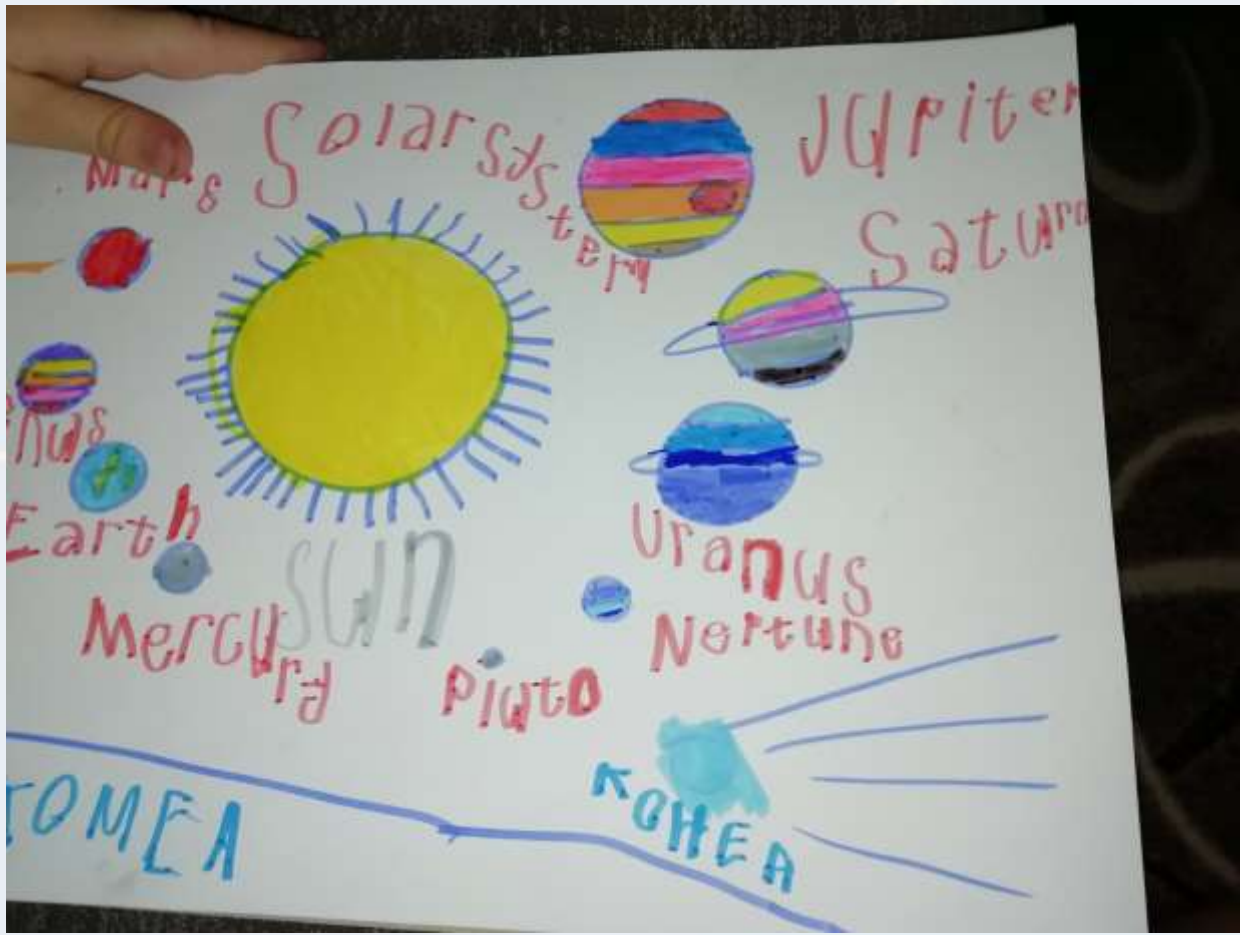 Mars
Solar System
Jupiter
Saturn
inus
Earth
sun
Mercury
Uranus
Neptune
Pluto
KOHEA
OMEA